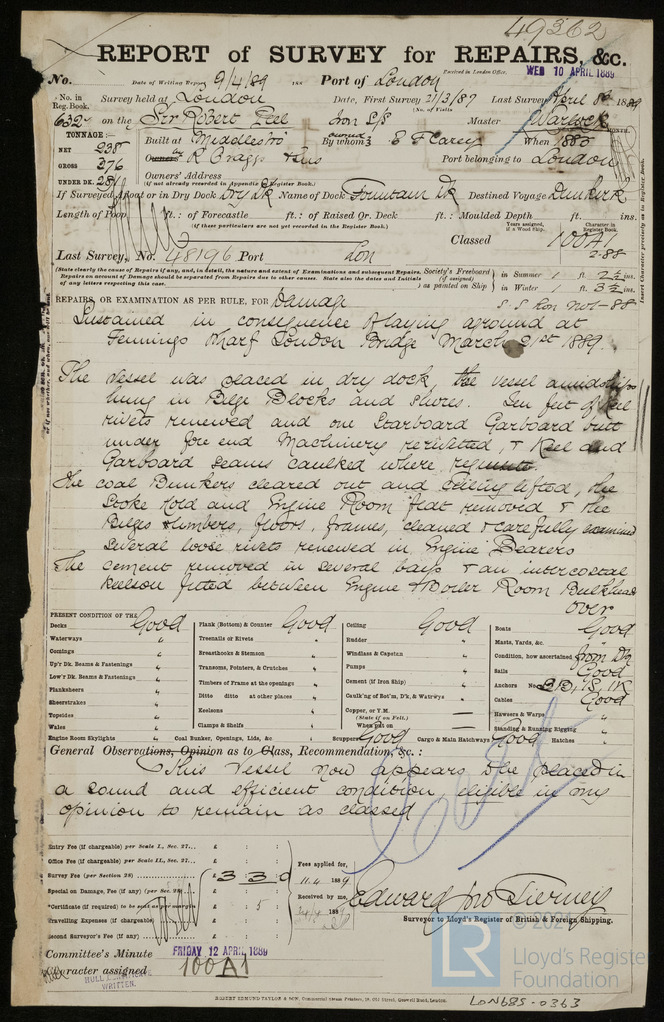 49362
REPORT of SURVEY for REPAIRS, &c.
No. Date of Writing Report 9/4/89 188 Port of London Received in London Office, WED 10 APRIL 1889
No. in Reg. Book. Survey held at London Date, First Survey 21/3/89 Last Survey April 8th 1889
(No. of Visits
632 on the Sir Robert Peel Iron S/S Master Warlock
TONNAGE: Built at Middlesbro By whom owned E F Carey When 1885 MONTH.
NET 238
GROSS 276 Owners by R Craggs & Sons Port belonging to London
UNDER DK. 231 Owners' Address
(if not already recorded in Appendix to Register Book.)
If Surveyed Afloat or in Dry Dock Dry Dk Name of Dock Fountain Dk Destined Voyage Dunkirk
Length of Poop ft.: of Forecastle ft.: of Raised Qr. Deck ft.: Moulded Depth ft. ins.
(if these particulars are not yet recorded in the Register Book.)
Years assigned, if a Wood Ship. Character in Register Book.
Last Survey, No. 48196 Port Lon Classed 100A1
2.88
(State clearly the cause of Repairs if any, and, in detail, the nature and extent of Examinations and subsequent Repairs. Repairs on account of Damage should be separated from Repairs due to other causes. State also the dates and Initials of any letters respecting this case.
Society's Freeboard (if assigned) as painted on Ship in Summer 1 ft. 2½ ins.
in Winter 1 ft. 3½ ins.
REPAIRS, OR EXAMINATION AS PER RULE, FOR Damage S S Lon Nov-88
Sustained in consequence of laying aground at
Fennings Wharf London Bridge March 21st 1889.
The Vessel was placed in dry dock, the vessel amidships
hung in Bilge Blocks and shores. Ten feet of Keel
rivets renewed and one Starboard Garboard butt
under fore end Machinery rerivetted, & Keel and
Garboard seams caulked where requisite.
The coal Bunkers cleared out and ceiling lifted, the
Stoke hold and Engine Room flat removed & the
Bilges & limbers, floors, frames, cleaned & carefully examined
several loose rivets renewed in Engine Bearers
The cement removed in several bays & an intercostal
keelson fitted between Engine & Boiler Room Bulkhead
over
PRESENT CONDITION OF THE
Decks Good
Waterways "
Comings "
Up'r Dk. Beams & Fastenings "
Low'r Dk. Beams & Fastenings "
Planksheers "
Sheerstrakes "
Topsides "
Wales "
Engine Room Skylights "
Plank (Bottom) & Counter Good
Treenails or Rivets "
Breasthooks & Stemson "
Transoms, Pointers, & Crutches "
Timbers of Frame at the openings "
Ditto ditto at other places "
Keelsons "
Clamps & Shelfs "
Coal Bunker, Openings, Lids, &c "
Ceiling Good
Rudder "
Windlass & Capstan "
Pumps "
Cement (if Iron Ship) "
Caulk'ng of Bot'm, D'k, & Watrwys "
Copper, or Y.M.
(State if on Felt.)
When put on
Scuppers Good
Boats Good
Masts, Yards, &c. "
Condition, how ascertained from Dk
Sails Good
Anchors No. 3B, 1S, 1K
Cables Good
Hawsers & Warps "
Standing & Running Rigging "
Cargo & Main Hatchways Good Hatches "
General Observations, Opinion as to Class, Recommendation, &c.:
This Vessel now appears to be placed in
a sound and efficient condition, eligible in my
opinion to remain as classed
Entry Fee (if chargeable) per Scale I., Sec. 27... £ : :
Office Fee (if chargeable) per Scale II., Sec. 27... £ : :
Survey Fee (per Section 28) £ 3 3 0
Special or Damage, Fee (if any) (per Sec. 28) £ : :
*Certificate (if required) to be sent as per margin £ : 5 :
Travelling Expenses (if chargeable) £ : :
Second Surveyor's Fee (if any) £ : :
Fees applied for, 11.4 1889
Received by me,
Edward Jno Tierney
Surveyor to Lloyd's Register of British & Foreign Shipping.
Committee's Minute FRIDAY 12 APRIL 1889
Character assigned 100A1
WRITTEN.
ROBERT EDMUND TAYLOR & SON,
© 2021
LR
Lloyd's Register
Foundation
LON685-0363